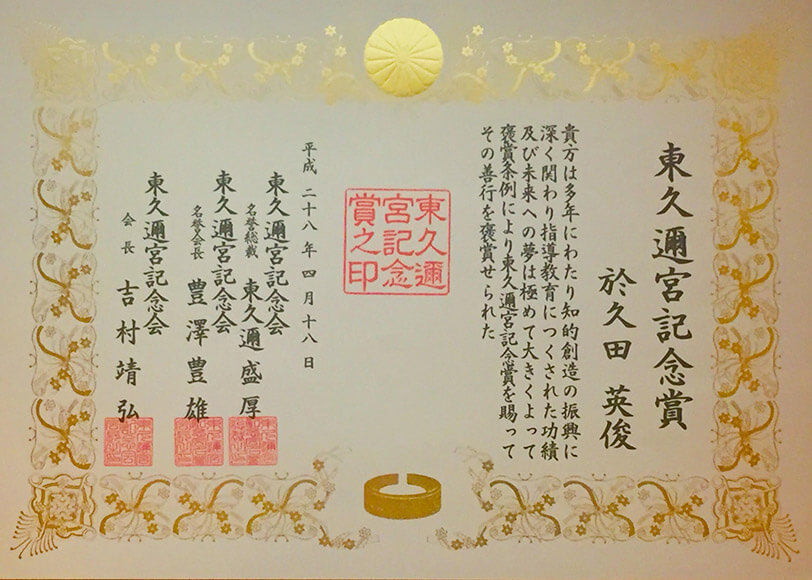 東久邇宮記念賞
於久田 英俊
貴方は多年にわたり知的創造の振興に
深く関わり指導教育につくされた功績
及び未来への夢は極めて大きくよって
褒賞条例により東久邇宮記念賞を賜って
その善行を褒賞せられた
東久邇
宮記念
賞之印
平成二十八年四月十八日
東久邇宮記念会
名誉総裁 東久邇 盛厚
東久邇宮記念会
名誉会長 豊澤豊雄
東久邇宮記念会
会長 吉村靖弘